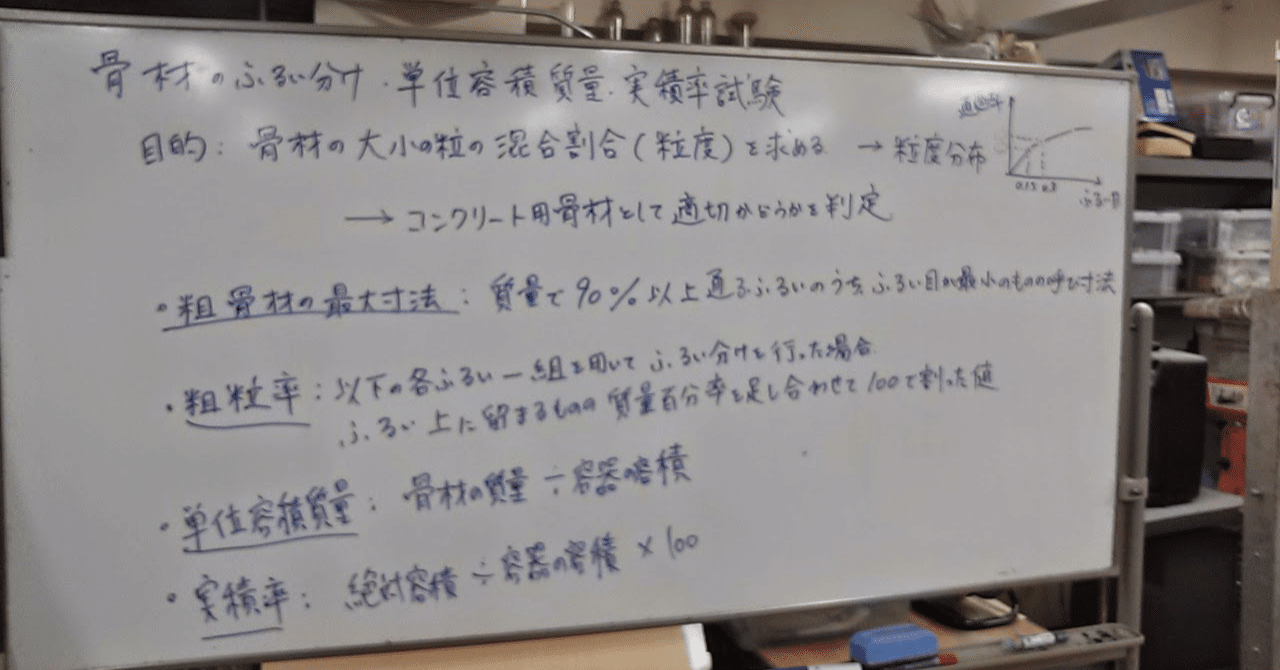 骨材のふるい分け・単位容積質量・実積率試験
目的: 骨材の大小の粒の混合割合(粒度)を求める → 粒度分布
通過率
0.15 0.3
ふるい目
→ コンクリート用骨材として適切かどうかを判定
・粗骨材の最大寸法: 質量で90%以上通るふるいのうち ふるい目が最小のものの呼び寸法
・粗粒率: 以下の各ふるい一組を用いて ふるい分けを行った場合
ふるい上に留まるものの質量百分率を足し合わせて100で割った値
・単位容積質量: 骨材の質量÷容器の容積
・実積率: 絶対容積÷容器の容積×100